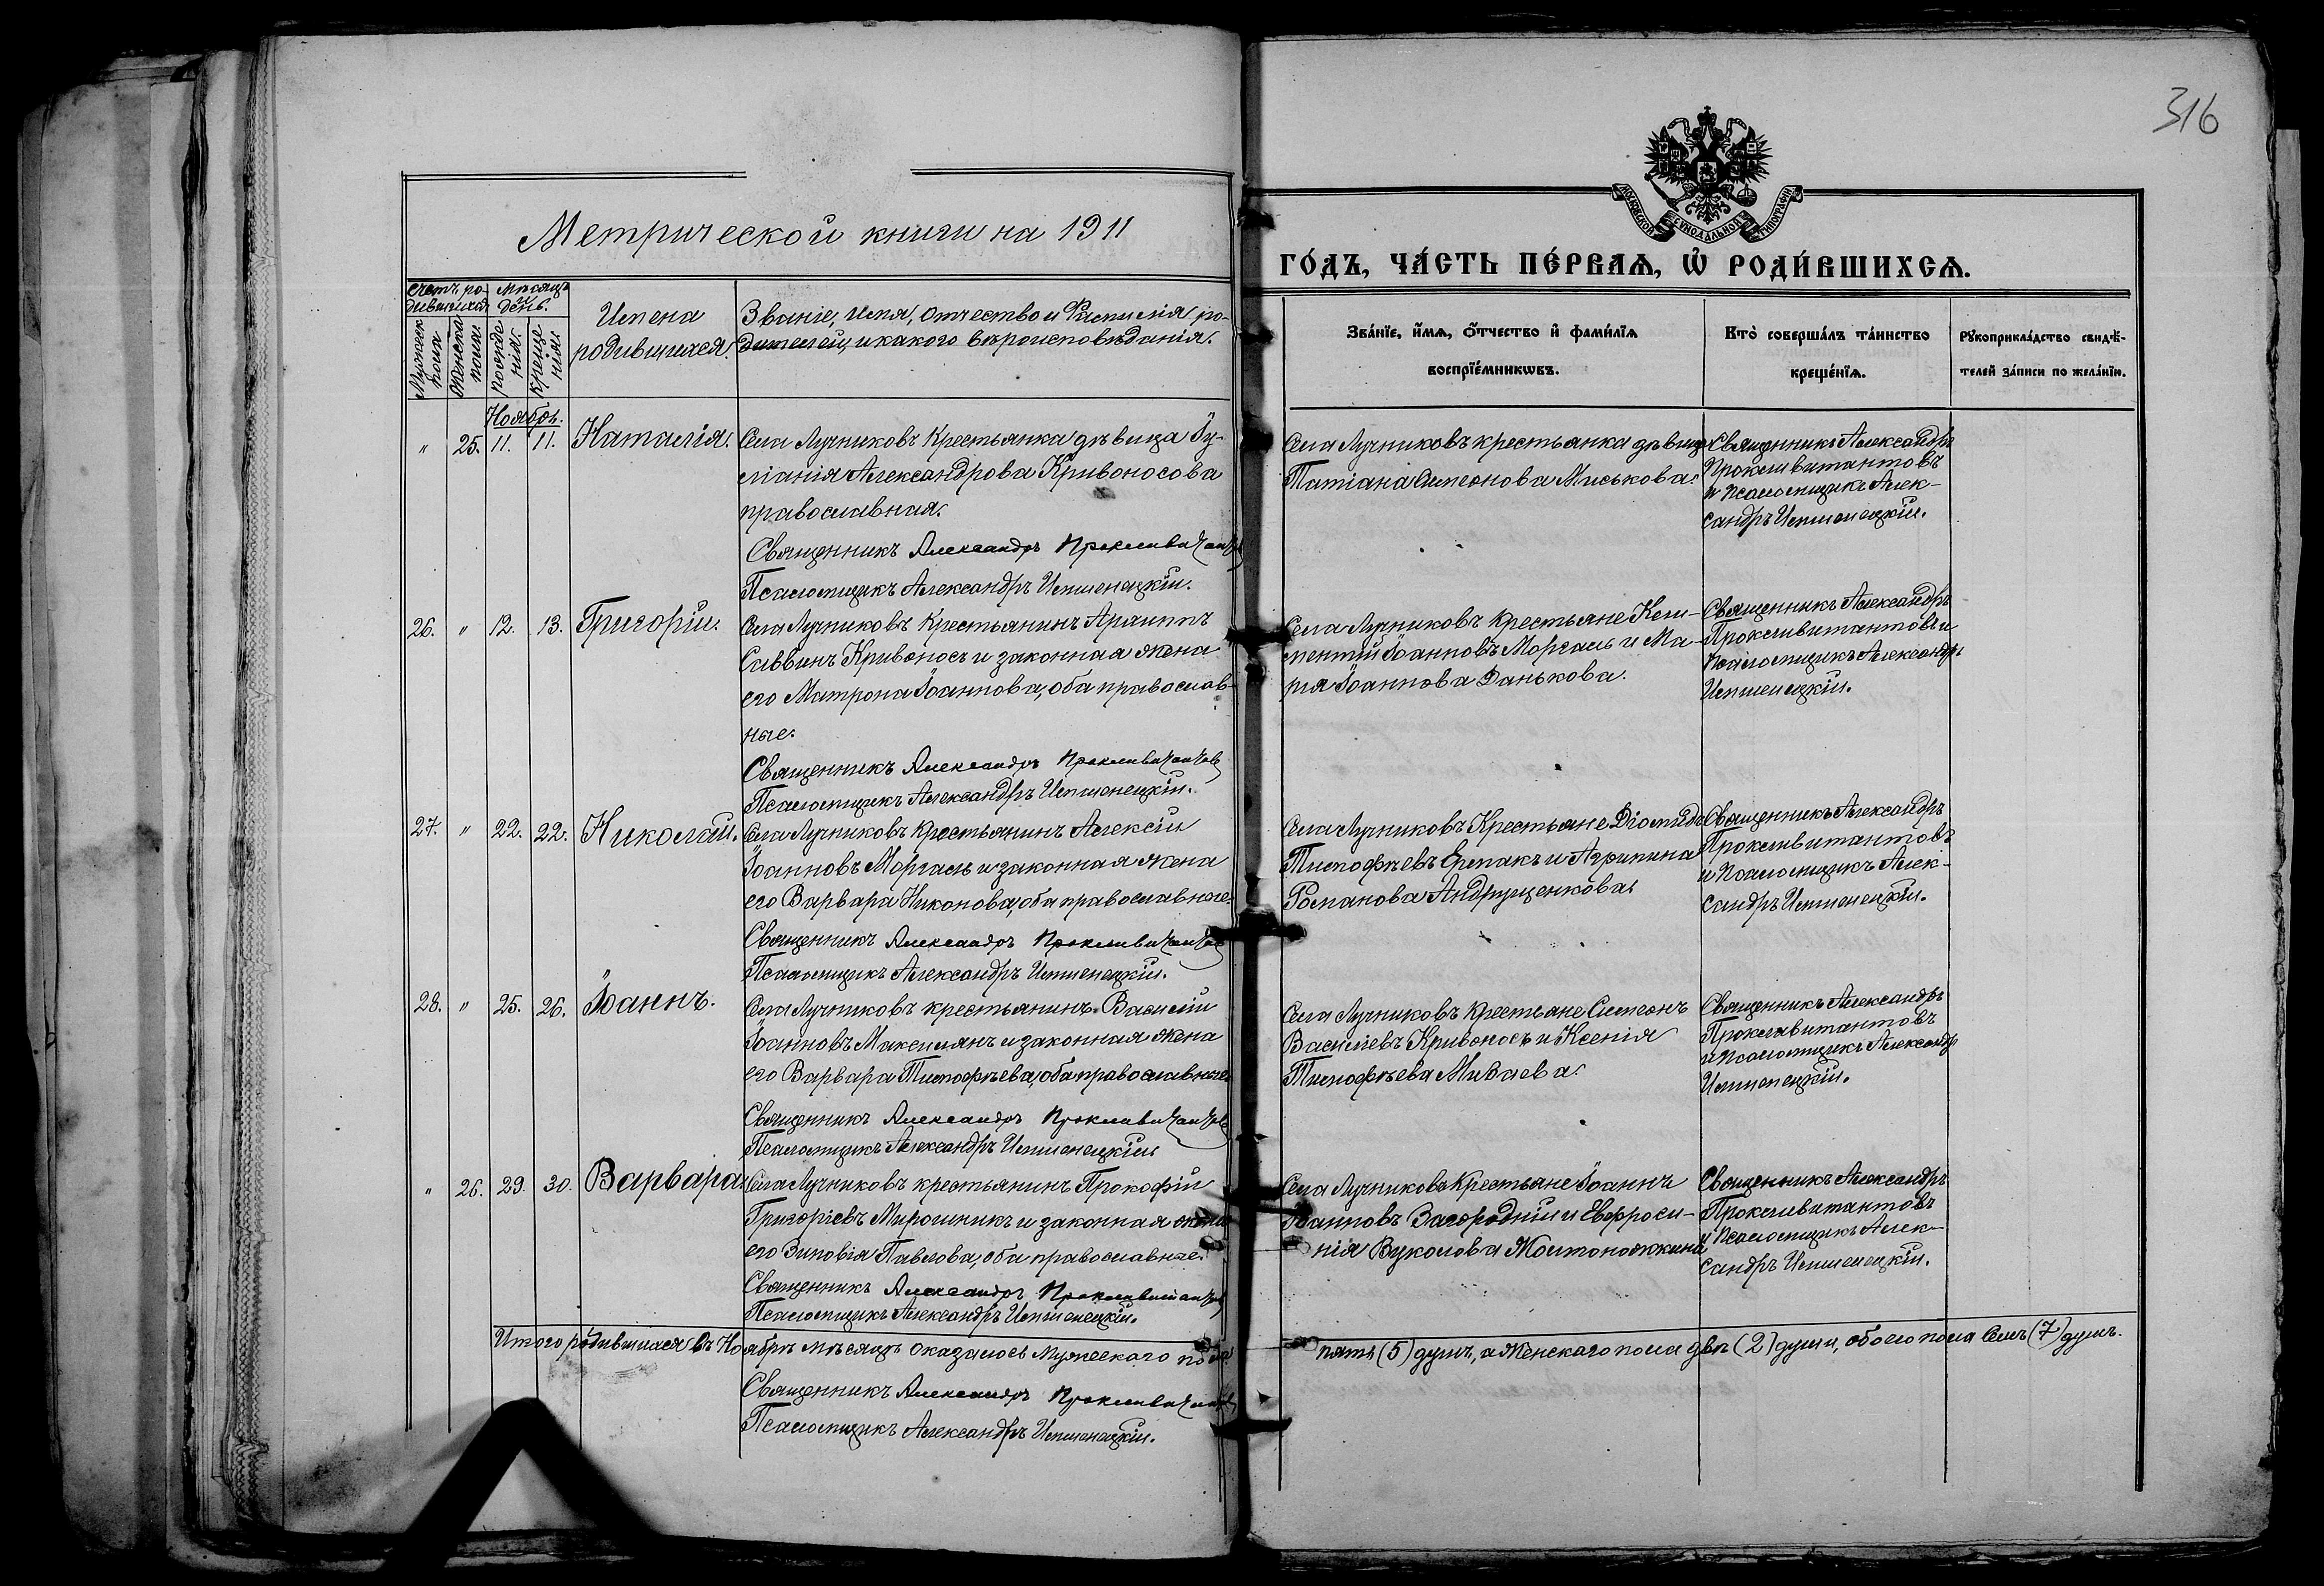 316
МОСКОВСКОЙ СѴНОДАЛЬНОЙ ТИПОГРАФІИ
Метрической книги на 1911
ГО́ДЪ, ЧА́СТЬ ПЕ́РВАѦ, Ѡ҆ РОДИ́ВШИХСѦ.
Счетъ ро-
дившихся
Мѣсяцъ
и
день.
Мужеск
пола
Женска
пола
рожде
нія.
креще
нія.
Имена
родившихся.
Званіе, имя, отчество и Фамилія ро-
дителей, и какого вѣроисповѣданія.
Зва́нїе, и҆́мѧ, ѻ҆́тчество и҆ фами́лїѧ
воспрїе́мникѡвъ.
Кто̀ соверша́лъ та́инство
креще́нїѧ.
Рꙋкоприкла́дство свидѣ́-
телей за́писи по жела́нїю.
Ноябрь.
" 25. 11. 11. Наталія.
Села Лучниковъ Крестьянка дѣвица Іу-
ліанія Александрова Кривоносова
православная.
Священникъ Александръ Проклевитантовъ
Псаломщикъ Александръ
Села Лучниковъ крестьянка дѣвица
Татіана Симеонова Миськова.
Священникъ Александръ
Проклевитантовъ
и Псаломщикъ Алек-
сандръ
26. " 12. 13. Григорій.
Села Лучниковъ Крестьянинъ Архиппъ
Саввинъ Кривоносъ и законная жена
его Матрона Іоаннова, оба православ-
ные.
Священникъ Александръ Проклевитантовъ
Псаломщикъ Александръ
Села Лучниковъ Крестьяне Кли-
ментій Іоанновъ Моргаль и Ма-
рія Іоаннова Данькова.
Священникъ Александръ
Проклевитантовъ и
Псаломщикъ Александръ
27. " 22. 22. Николай.
Села Лучниковъ Крестьянинъ Алексій
Іоанновъ Моргаль и законная жена
его Варвара Никонова, оба православные.
Священникъ Александръ Проклевитантовъ
Псаломщикъ Александръ
Села Лучниковъ Крестьяне Діомидъ
Тимофѣевъ Ермакъ и Агрипина
Романова Андрущенкова.
Священникъ Александръ
Проклевитантовъ
и Псаломщикъ Алек-
сандръ
28. " 25. 26. Іоаннъ.
Села Лучниковъ крестьянинъ Василій
Іоанновъ Максимянъ и законная жена
его Варвара Тимофѣева, оба православные.
Священникъ Александръ Проклевитантовъ
Псаломщикъ Александръ
Села Лучниковъ Крестьяне Симеонъ
Василіевъ Кривоносъ и Ксенія
Тимофѣева
Священникъ Александръ
Проклевитантовъ
и Псаломщикъ Александръ
" 26. 29. 30. Варвара.
Села Лучниковъ крестьянинъ Прокофій
Григоріевъ Мирошникъ и законная жена
его Зиновія Павлова, оба православные.
Священникъ Александръ Проклевитантовъ
Псаломщикъ Александръ
Села Лучниковъ Крестьяне Іоаннъ
Іоанновъ Загородній и Евфроси-
нія Вуколова Жолтоножкина
Священникъ Александръ
Проклевитантовъ
и Псаломщикъ Алек-
сандръ
Итого родившихся въ Ноябрѣ мѣсяцѣ оказалось Мужеского пола
пять (5) душъ, а Женскаго пола двѣ (2) души, обоего пола Семь (7) душъ.
Священникъ Александръ Проклевитантовъ
Псаломщикъ Александръ